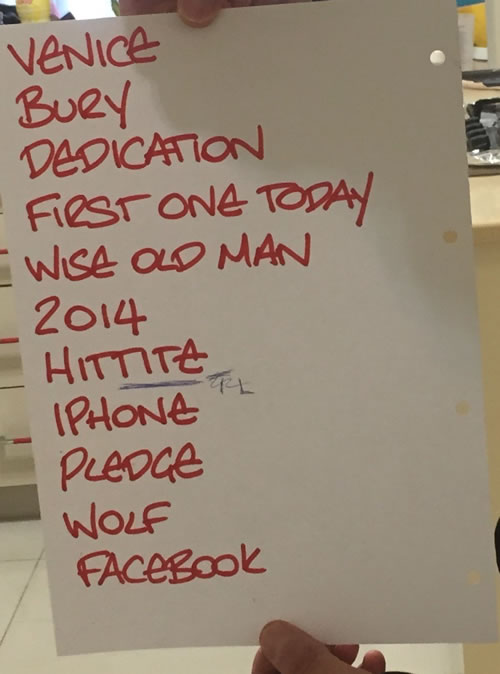 VENICE
BURY
DEDICATION
FIRST ONE TODAY
WISE OLD MAN
2014
HITTITE
IPHONE
PLEDGE
WOLF
FACEBOOK